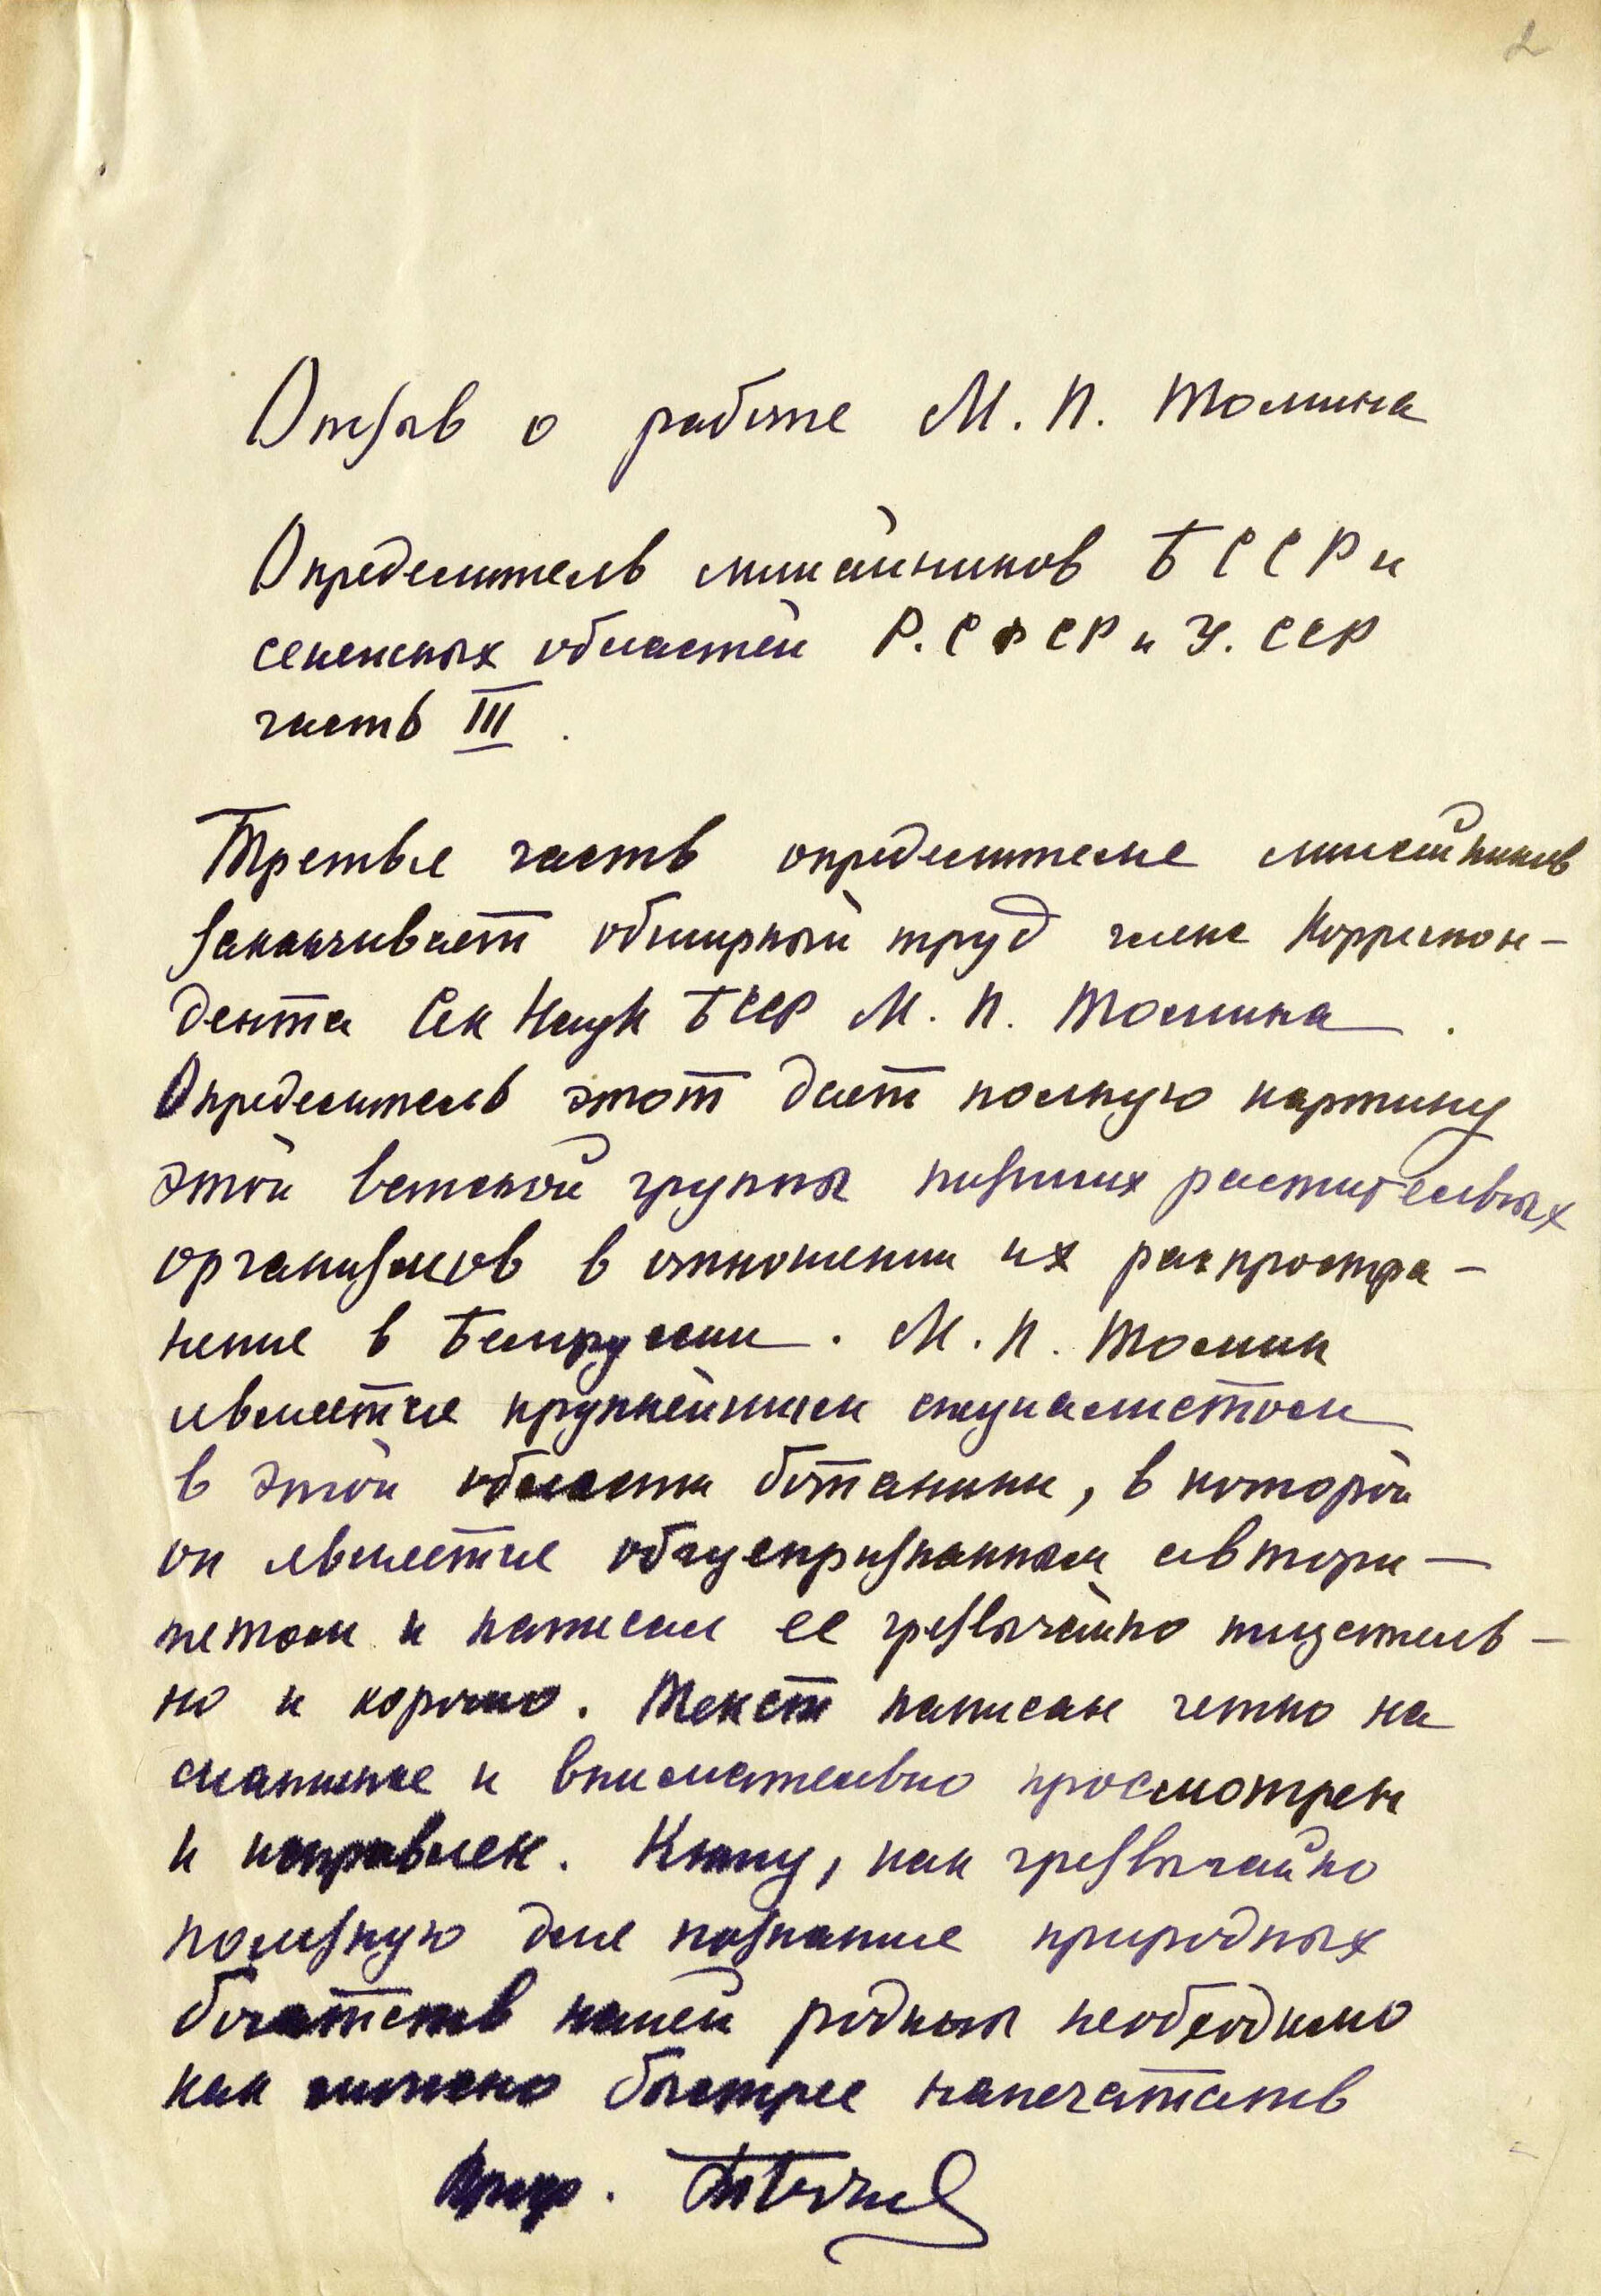 2
Отзыв о работе М. П. Томина
Определитель лишайников БССР и
смежных областей Р.СФСР и У.ССР
часть III.
Третья часть определителя лишайников
заканчивает обширный труд члена Корреспон-
дента Ак Наук БССР М. П. Томина.
Определитель этот дает полную картину
этой важной группы низших растительных
организмов в отношении их распростра-
нения в Белоруссии. М. П. Томин
является крупнейшим специалистом
в этой области ботаники, в которой
он является общепризнанным автори-
тетом и написал ее чрезвычайно тщатель-
но и хорошо. Текст написан четко на
машинке и внимательно просмотрен
и исправлен. Книгу, как чрезвычайно
полезную для познания природных
богатств нашей родины необходимо
как можно быстрее напечатать
Проф.